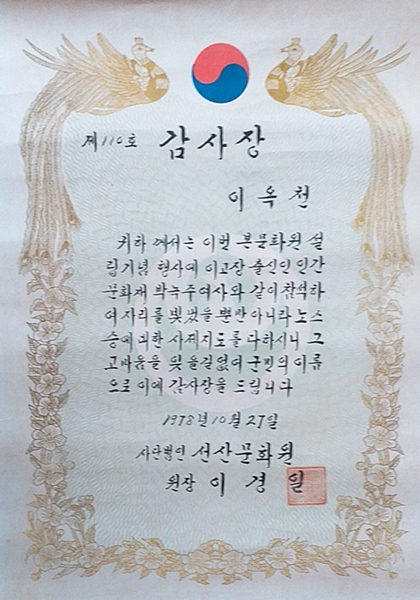 제110호 감사장
이옥천
귀하께서는 이번 본문화원 설
립기념 행사에 이고장 출신인 인간
문화재 박녹주여사와 같이 참석하
여 자리를 빛냈을 뿐만 아니라 노스
승에 대한 사제지도를 다하시니 그
고마움을 잊을길없어 군민의 이름
으로 이에 감사장을 드립니다
1978년 10월 27일
사단법인 선산문화원
원장 이경필